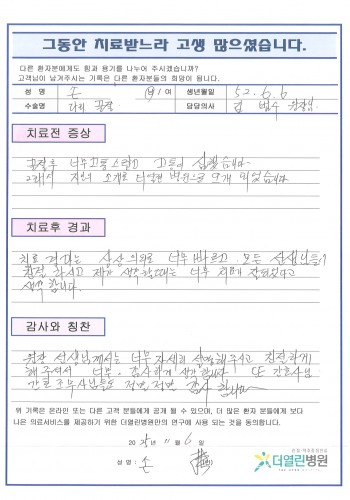 그동안 치료받느라 고생 많으셨습니다.
다른 환자분에게도 힘과 용기를 나누어 주시겠습니까?
고객님이 남겨주시는 기록은 다른 환자분들의 희망이 됩니다.
성 명 손 남 / 여 생년월일 52. 6. 6
수술명 다리 골절 담당의사 원장님
치료전 증상
골절후 너무 고통스럽고 고통이 심했습니다
그래서 지인의 소개로 더열린 병원으로 오게 되었습니다
치료후 경과
치료 경과는 상상외로 너무 빠르고 모든 선생님들이
친절 하시고 제가 생각할때는 너무 치료가 잘되었다고
생각 합니다.
감사와 칭찬
원장 선생님께서는 너무 자세히 설명해주시고 친절하게
해주셔서 너무 감사하게 생각합니다 또 간호사님
간호조무사님들도 저번저번 감사 합니다
위 기록은 온라인 또는 다른 고객 분들에게 공개 될 수 있으며, 더 많은 환자 분들에게 보다
나은 의료서비스를 제공하기 위한 더열린병원만의 연구에 사용 되는 것을 동의합니다.
2025년 11월 6일
성 명 : 손
더열린병원